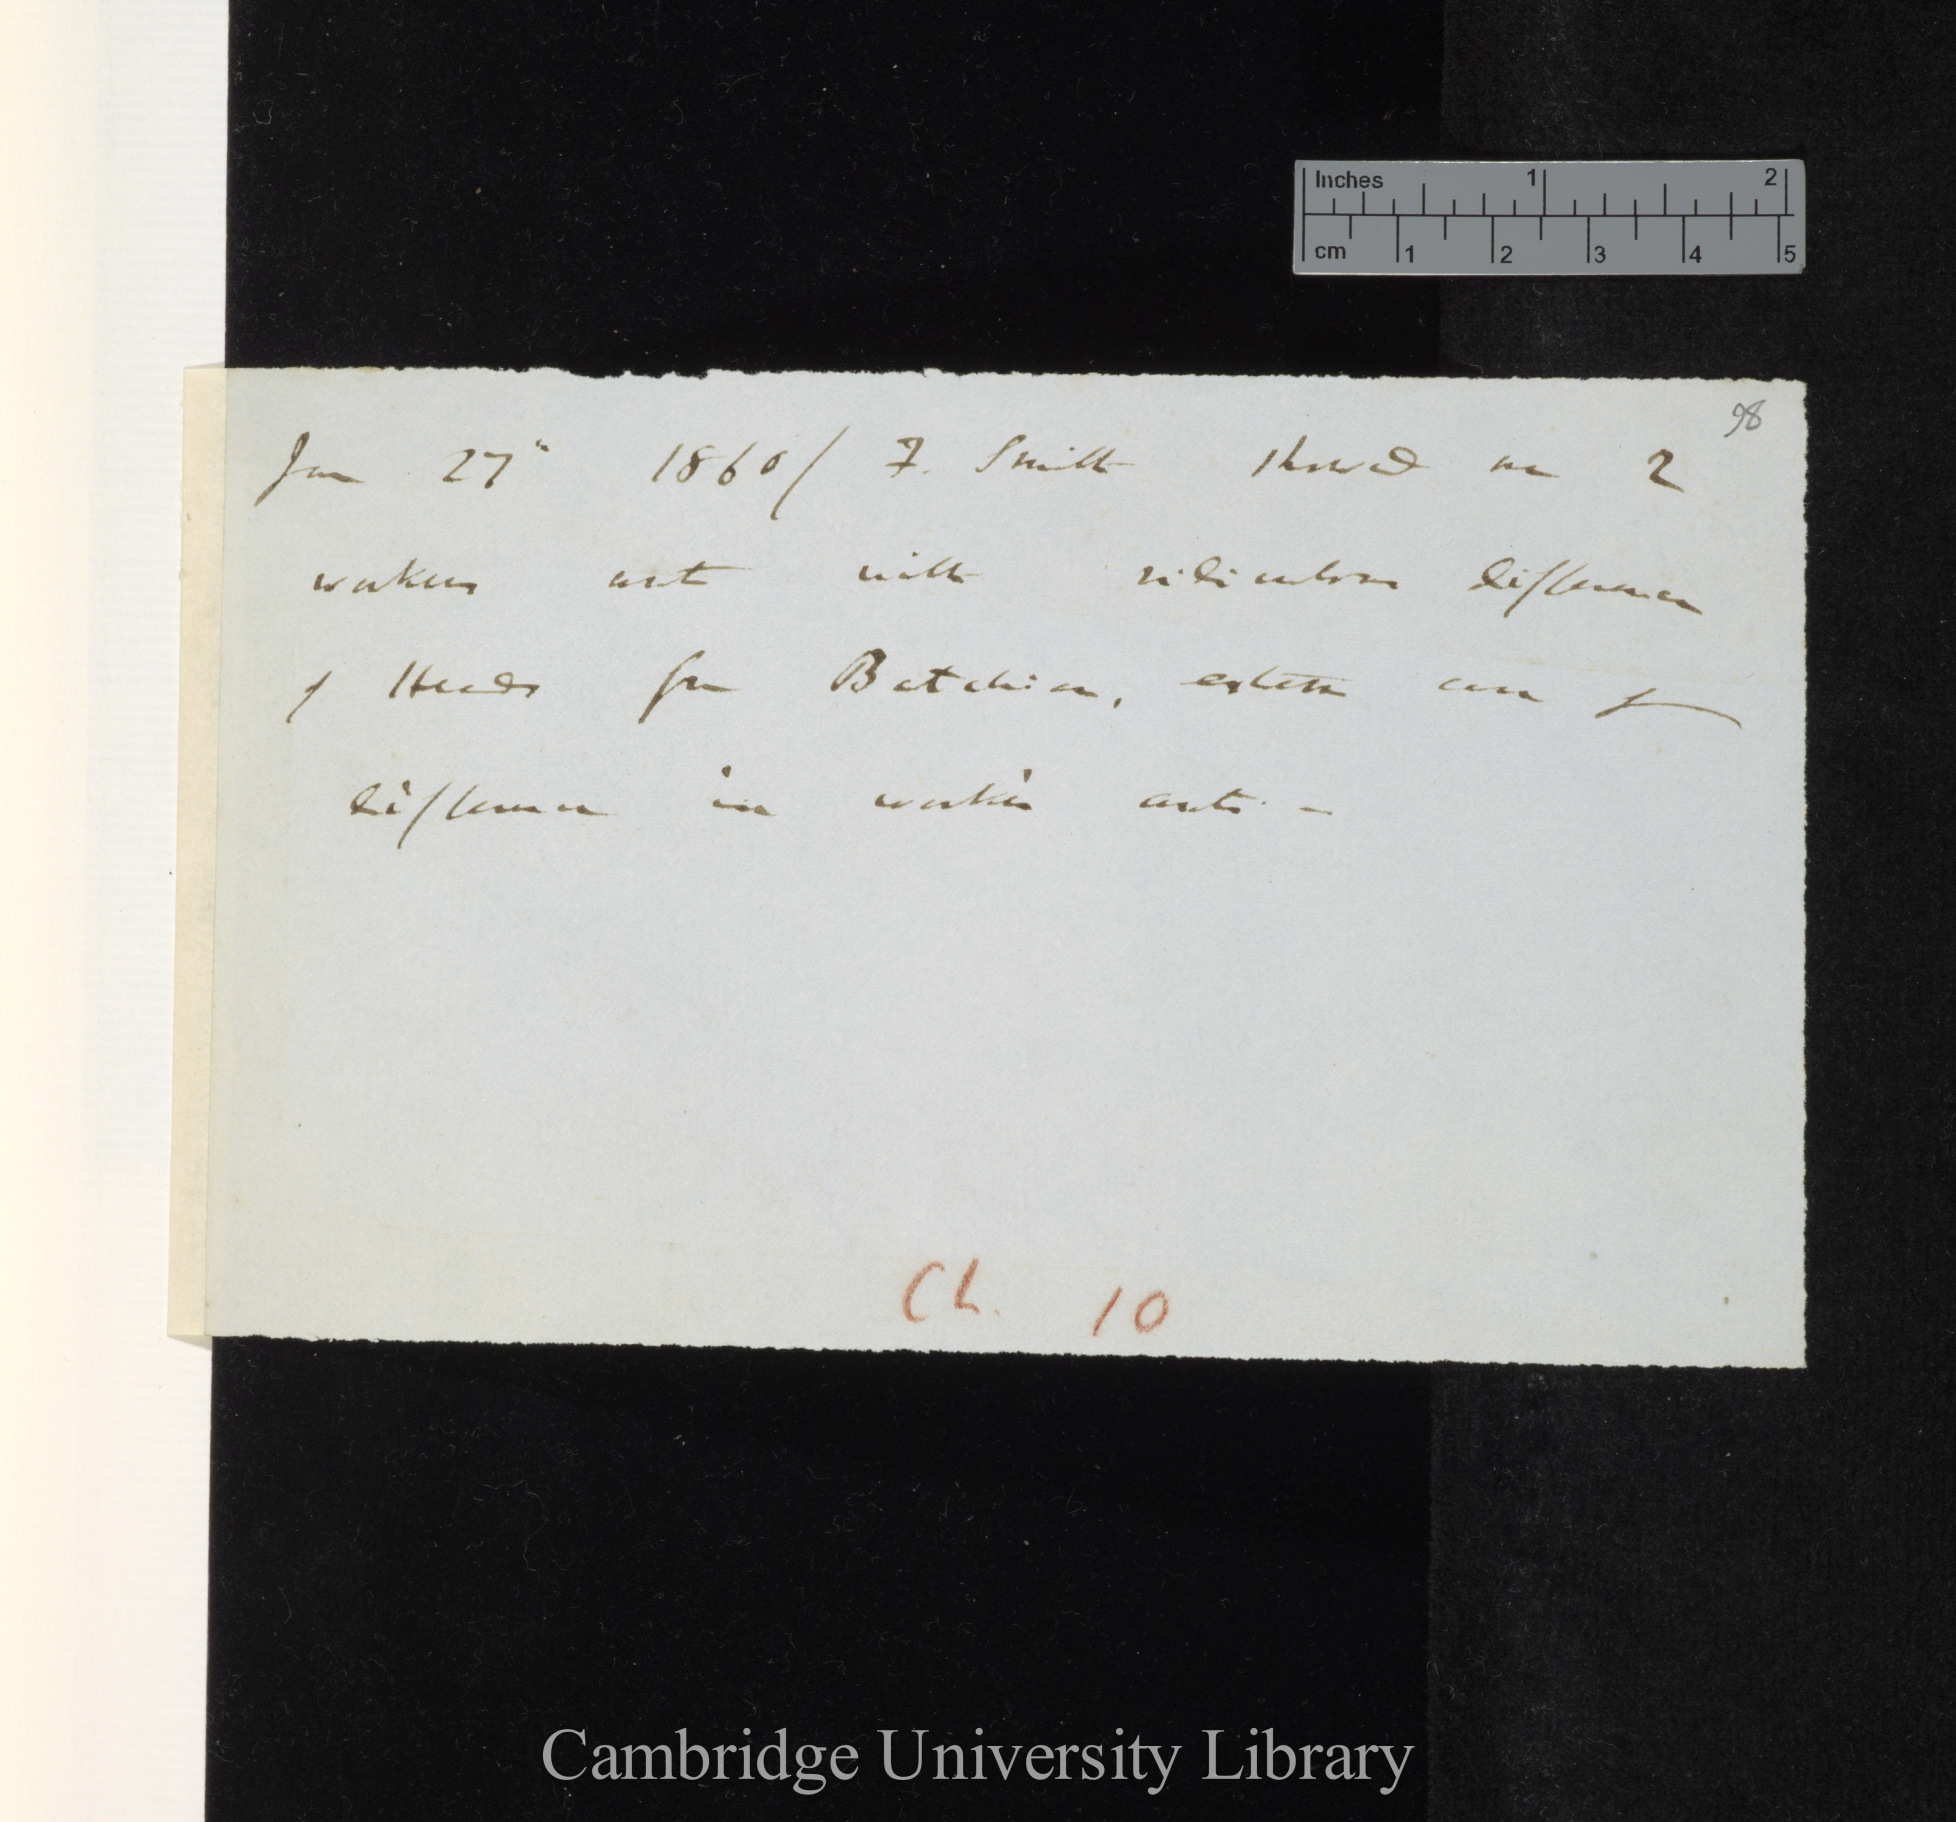 Inches 1 2
cm 1 2 3 4 5
98
Jan 27" 1860/ F. Smith showed me 2
workers ant with ridiculous difference
of Heads from Batchian, extreme case of
difference in worker ants. —
Ch. 10
Cambridge University Library